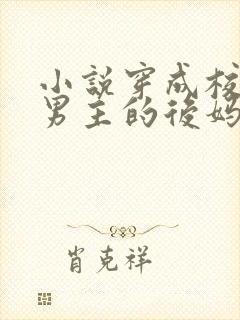 小說穿成校
男主的後媽
肖克祥